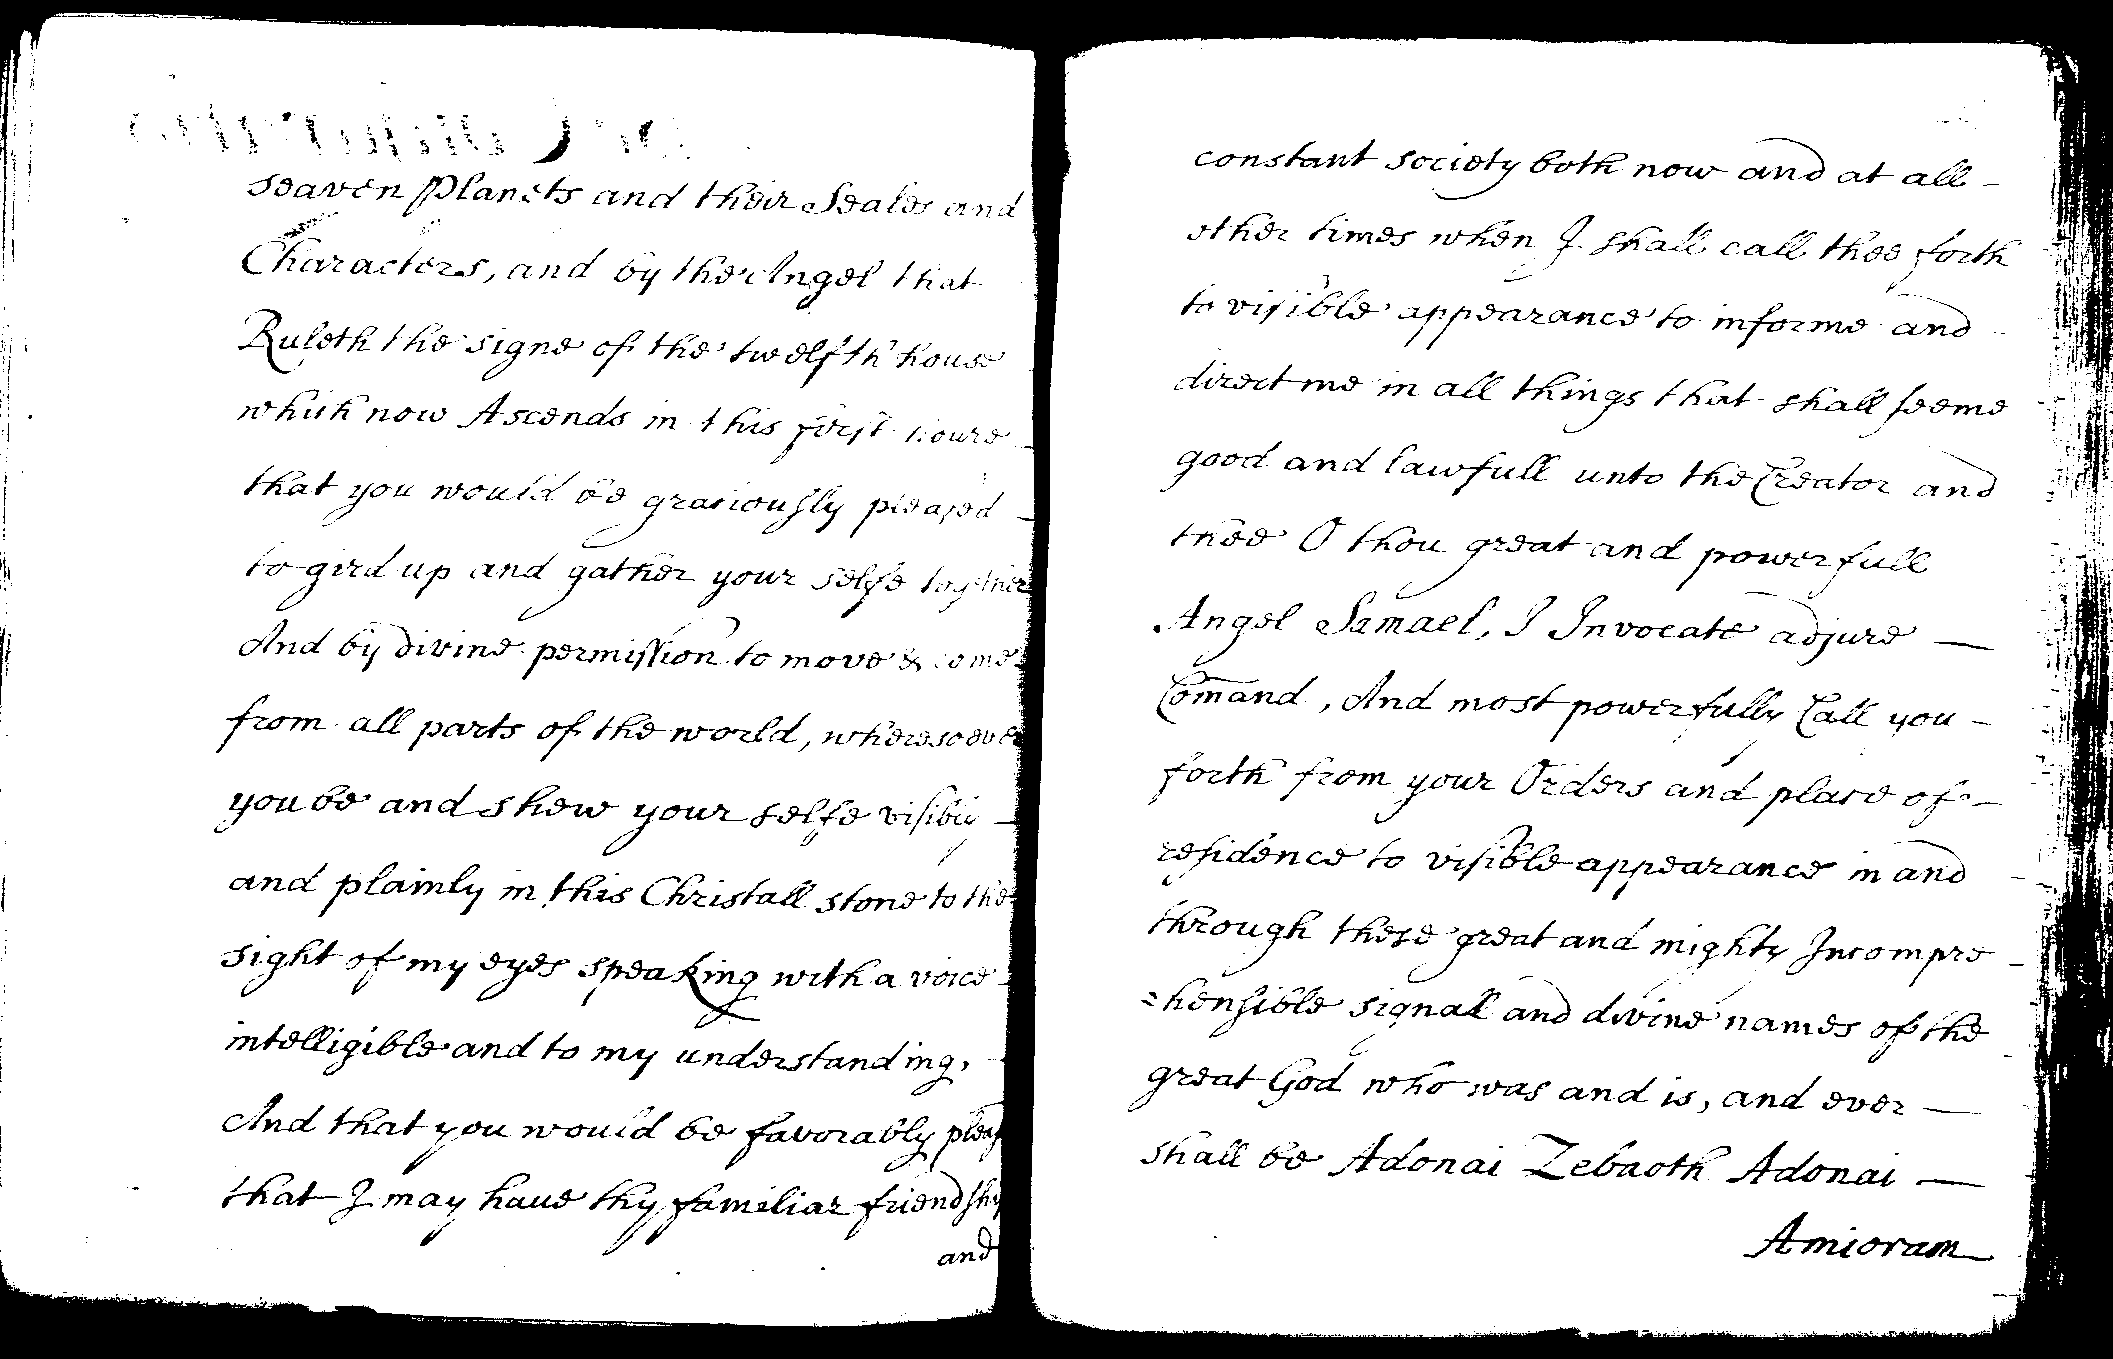 seaven Planets and their Seales and
Characters, and by the Angel that
Ruleth the signe of the twelfth house
which now Ascends in this first houre
that you would be graciously pleased
to gird up and gather your selfe together
And by divine permission to move & come
from all parts of the world, wheresoever
you be and shew your selfe visibly
and plainly in this Christall stone to the
sight of my eyes speaking with a voice
intelligible and to my understanding,
And that you would be favorably pleas
that I may haue thy familiar friendship
and
constant society both now and at all
other times when I shall call thee forth
to visible appearance to informe and
direct me in all things that shall seeme
good and lawfull unto the Creator and
thee O thou great and powerfull
Angel Samael, I Invocate adjure
Comand, And most powerfully Call you
forth from your Orders and place of
residence to visible appearance in and
through these great and mighty Incompre
=hensible signall and divine names of the
great God who was and is, and ever
shall be Adonai Zebaoth Adonai
Amioram